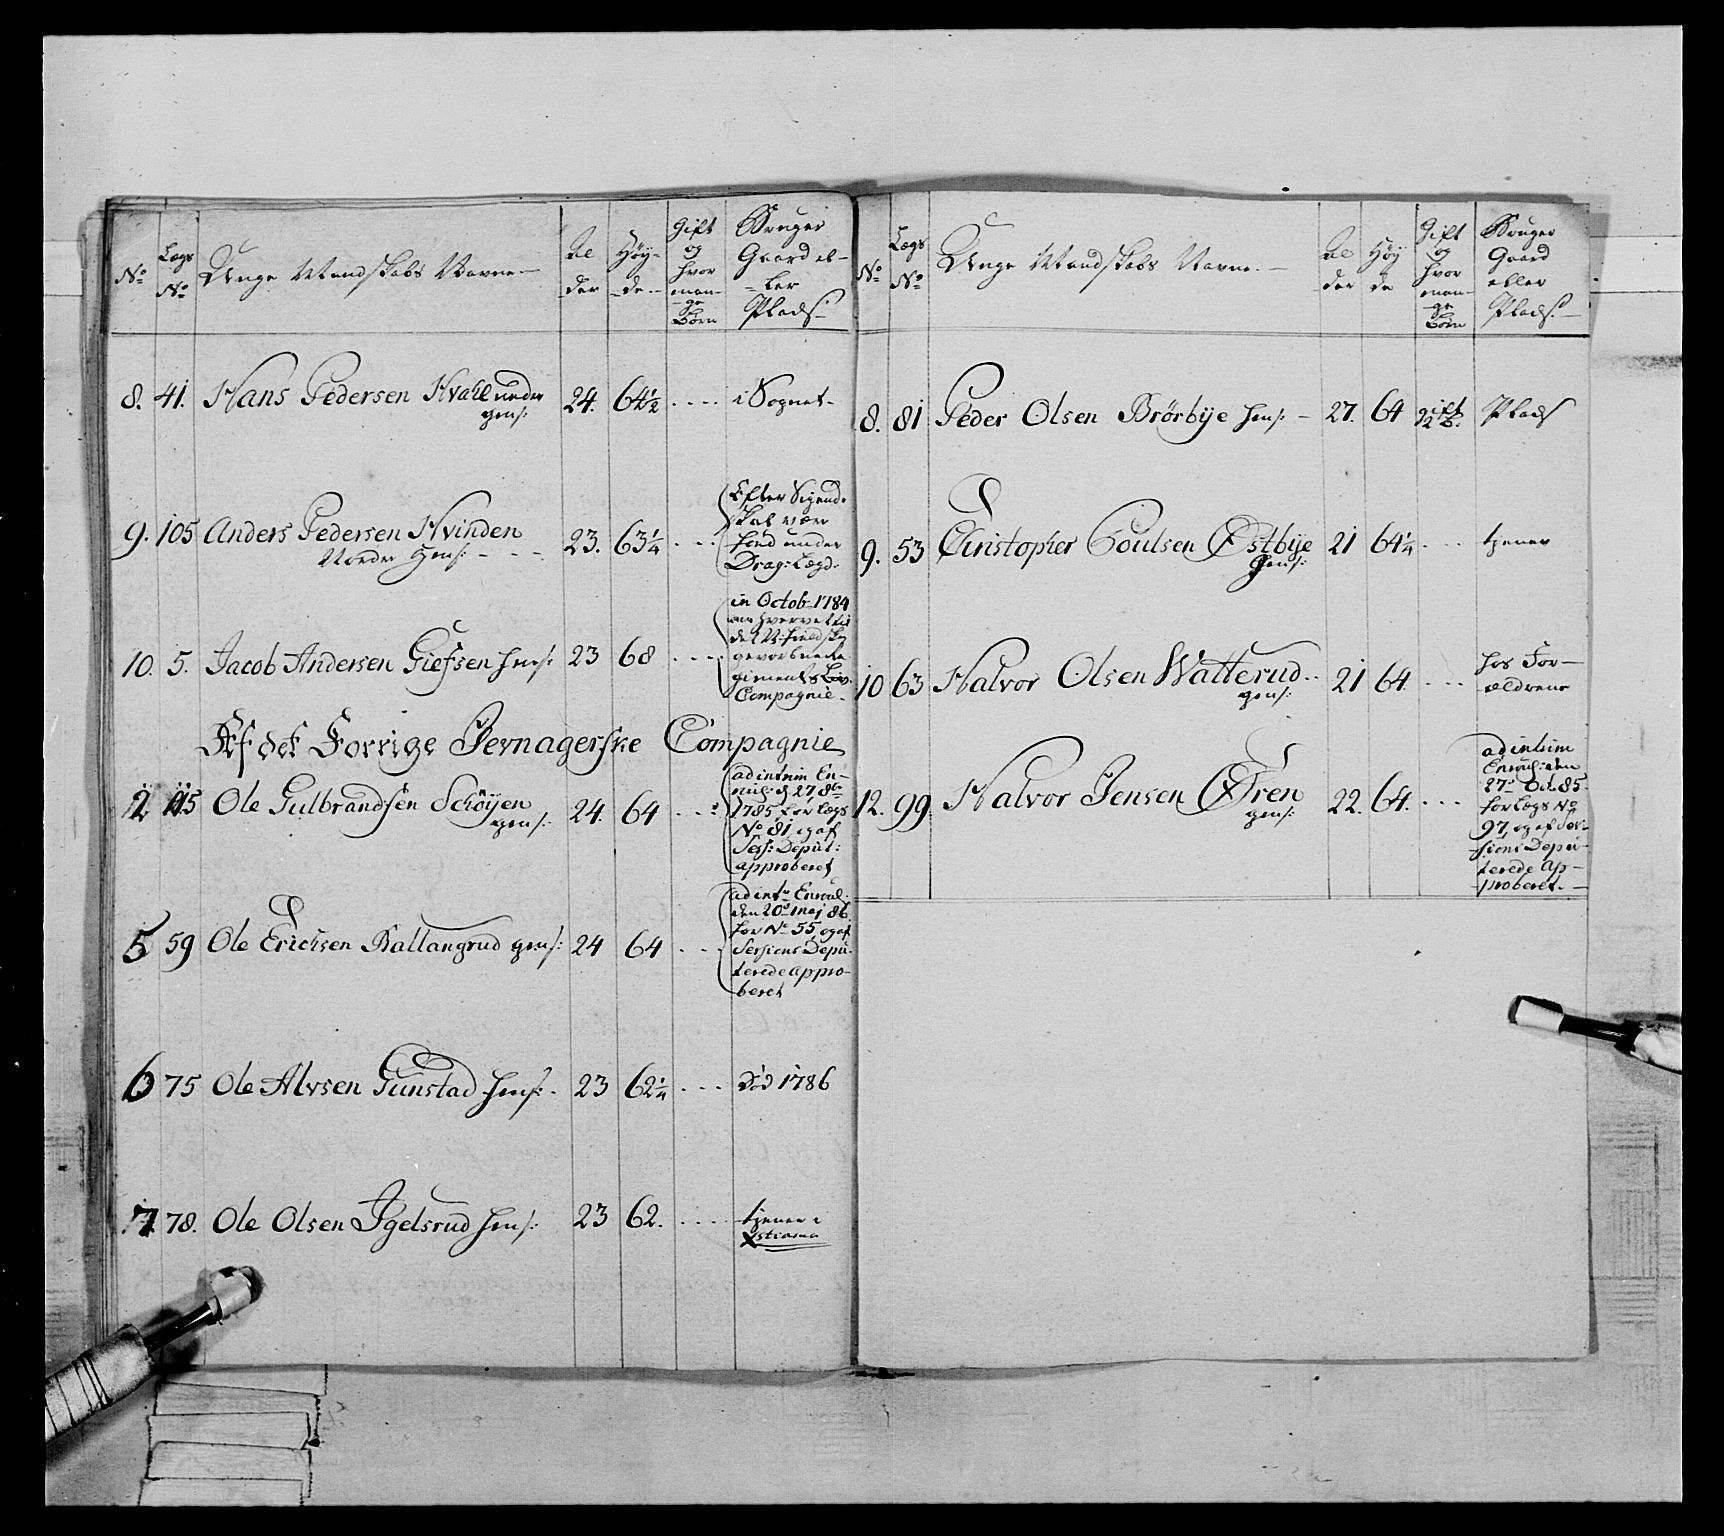 No
Lægs No
Unge Mandskabs Navne
Al der
Høy- de
Gift og hvor man- ge Børn
Bruger Gaard el- ler Plads
8. 41. Hans Pedersen Hvahl nedre 24. 64½ .... i Sognet
gens:
9. 105 Anders Pedersen Hvinden 23. 63¼ ...
Nordr gens:
Efter Sigend-
skal være
under
Drag: Lægd.
10. 5. Jacob Andersen Giefsen hens: 23 68 ....
in Octob 1784
gevorbnede
giments
Compagnie
Af det Forrige Jevnagerske Compagnie
12 115 Ole Gulbrandsen Schøyen 24. 64 ...
gens:
ad intrim En-
rul: d 27 8br
1785 for Lægs
No 81, og af
Sess: Deput:
approberet
5 59 Ole Erichsen Ballangrud gens: 24 64 ...
ad int. Enroul:
den 20de maj 86
for No 55, og af
Sessions Depu-
terede appro-
beret
6 75 Ole Alvsen Gunstad hens: 23 62¼ ... Død 1786
7 78. Ole Olsen Igelsrud hens: 23 62. .... tjener i
Xstiania
No
Lægs No
Unge Mandskabs Navne
Al der
Høy de
Gift og hvor man- ge Børn
Bruger Gaard eller Plads
8. 81 Peder Olsen Brørbye hens: 27. 64 gift 2 B. Plads
9. 53 Christopher Poulsen Østbye 21 64¼ ... tjener
hens:
10 63 Halvor Olsen Watterud 21 64. ... hos For-
gens:
ældrene
12. 99. Halvor Jensen Øren 22. 64. ...
gens:
ad intrim
Enroul: den
27de Oct. 85
for Lægs No
97, og af Ses-
sions Depu-
terede ap-
proberet.